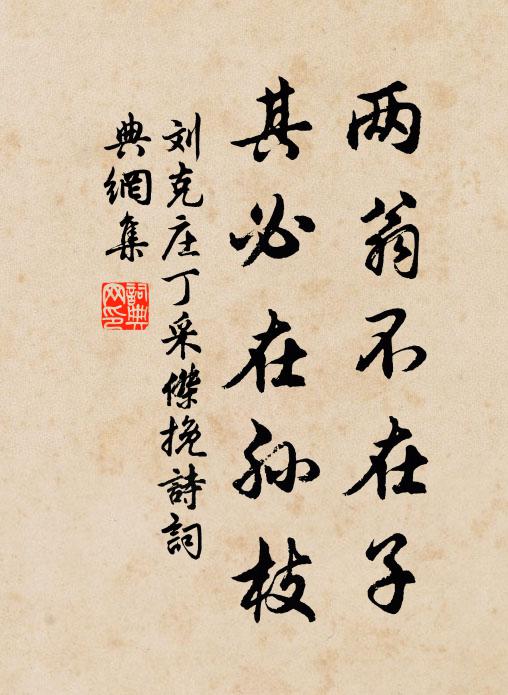 两翁不在子
其必在孙枝
刘克庄丁采傑挽詩詞
典網集
詞典
网印